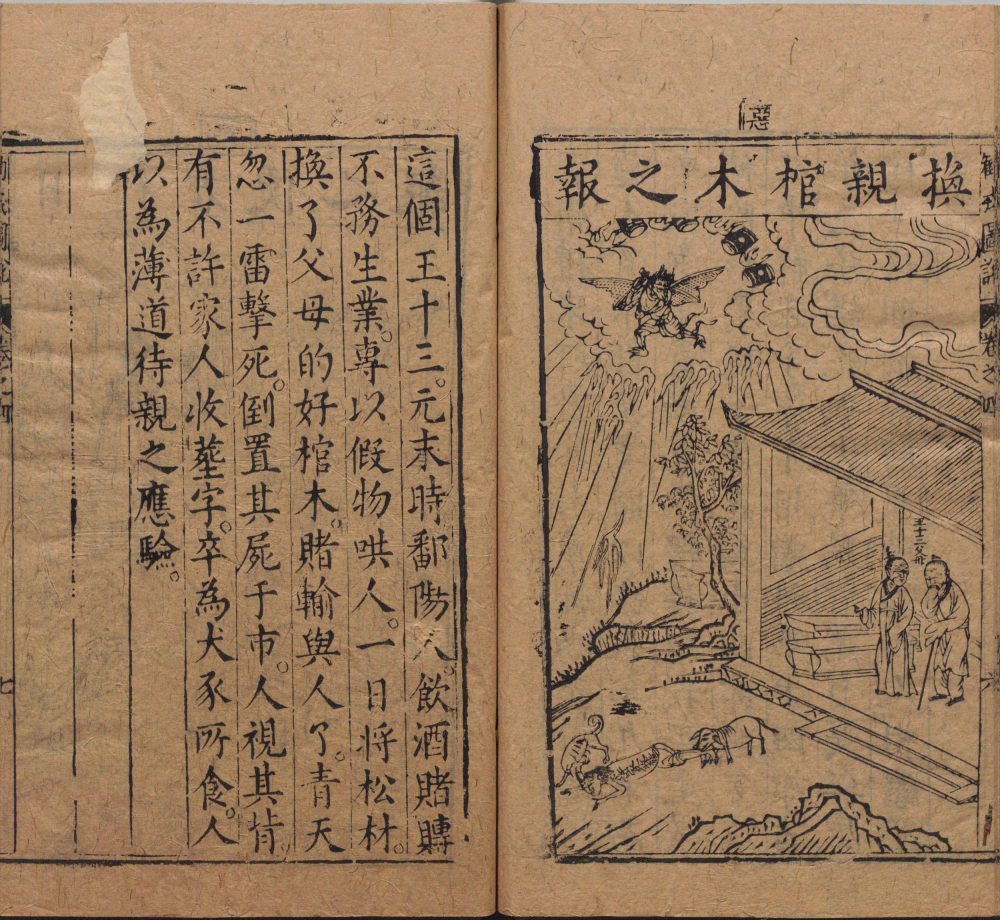 惡
換親棺木之報
勸戒圖說 卷之四 六
王十三父母
這個王十三。元末時鄱陽人。飲酒賭賻
不務生業。專以假物哄人。一日將松材。
換了父母的好棺木。賭輸與人了。青天
忽一雷擊死。倒置其屍于市。人視其背。
有不許家人收塟字。卒為犬豕所食。人
以為薄道待親之應驗。
七